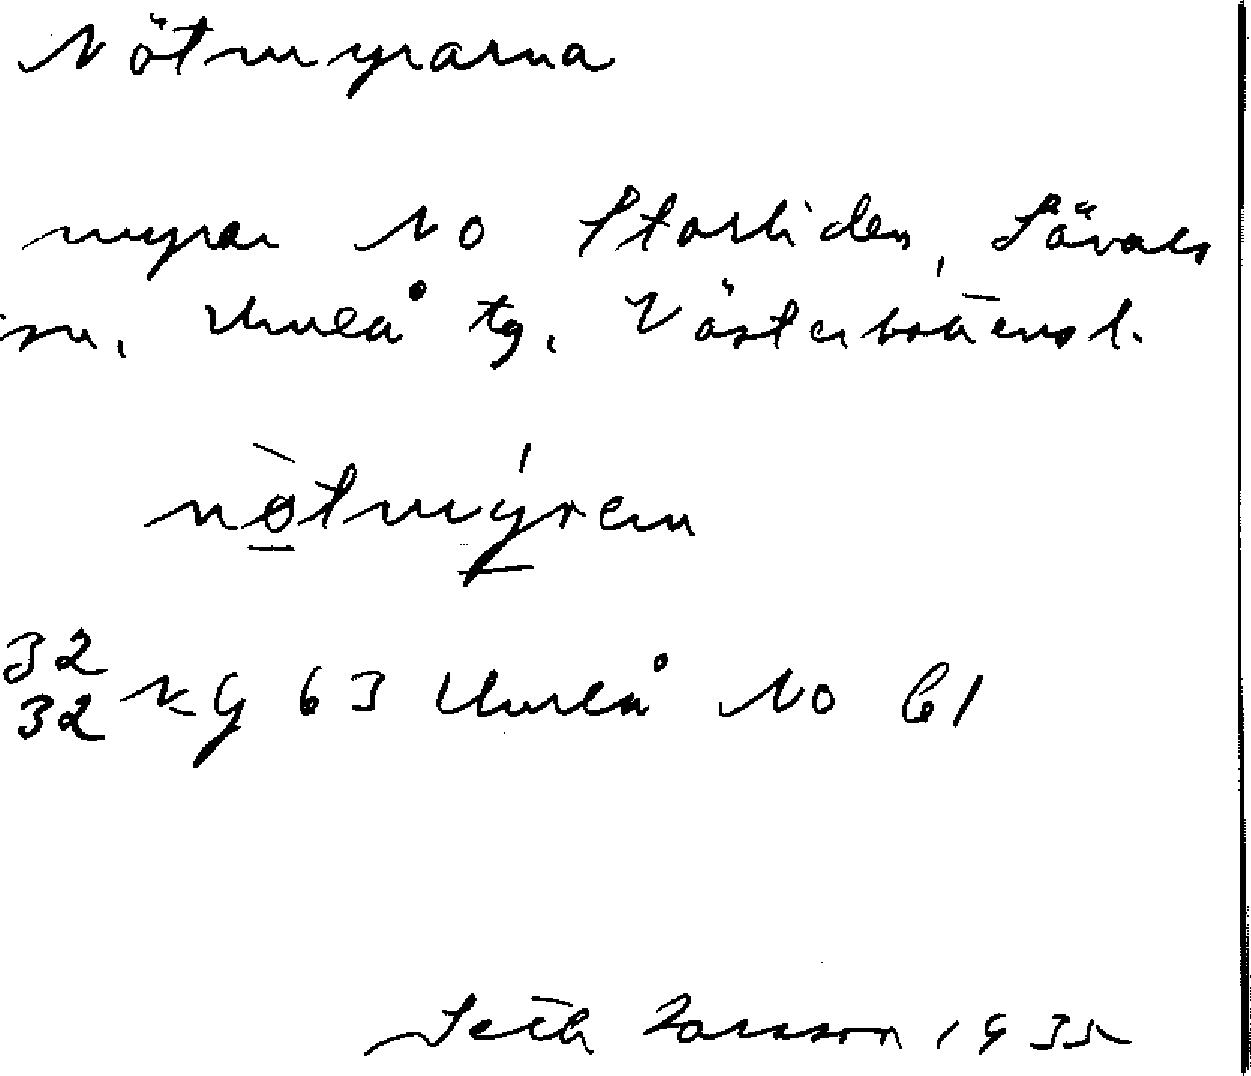 Nötmyrarna
myrar NO Storliden, Sävars
sn, Umeå tg. Västerbottensl.
nø̀tmýrern
32
32 NG 63 Umeå NO 61
Seth Larsson 1935